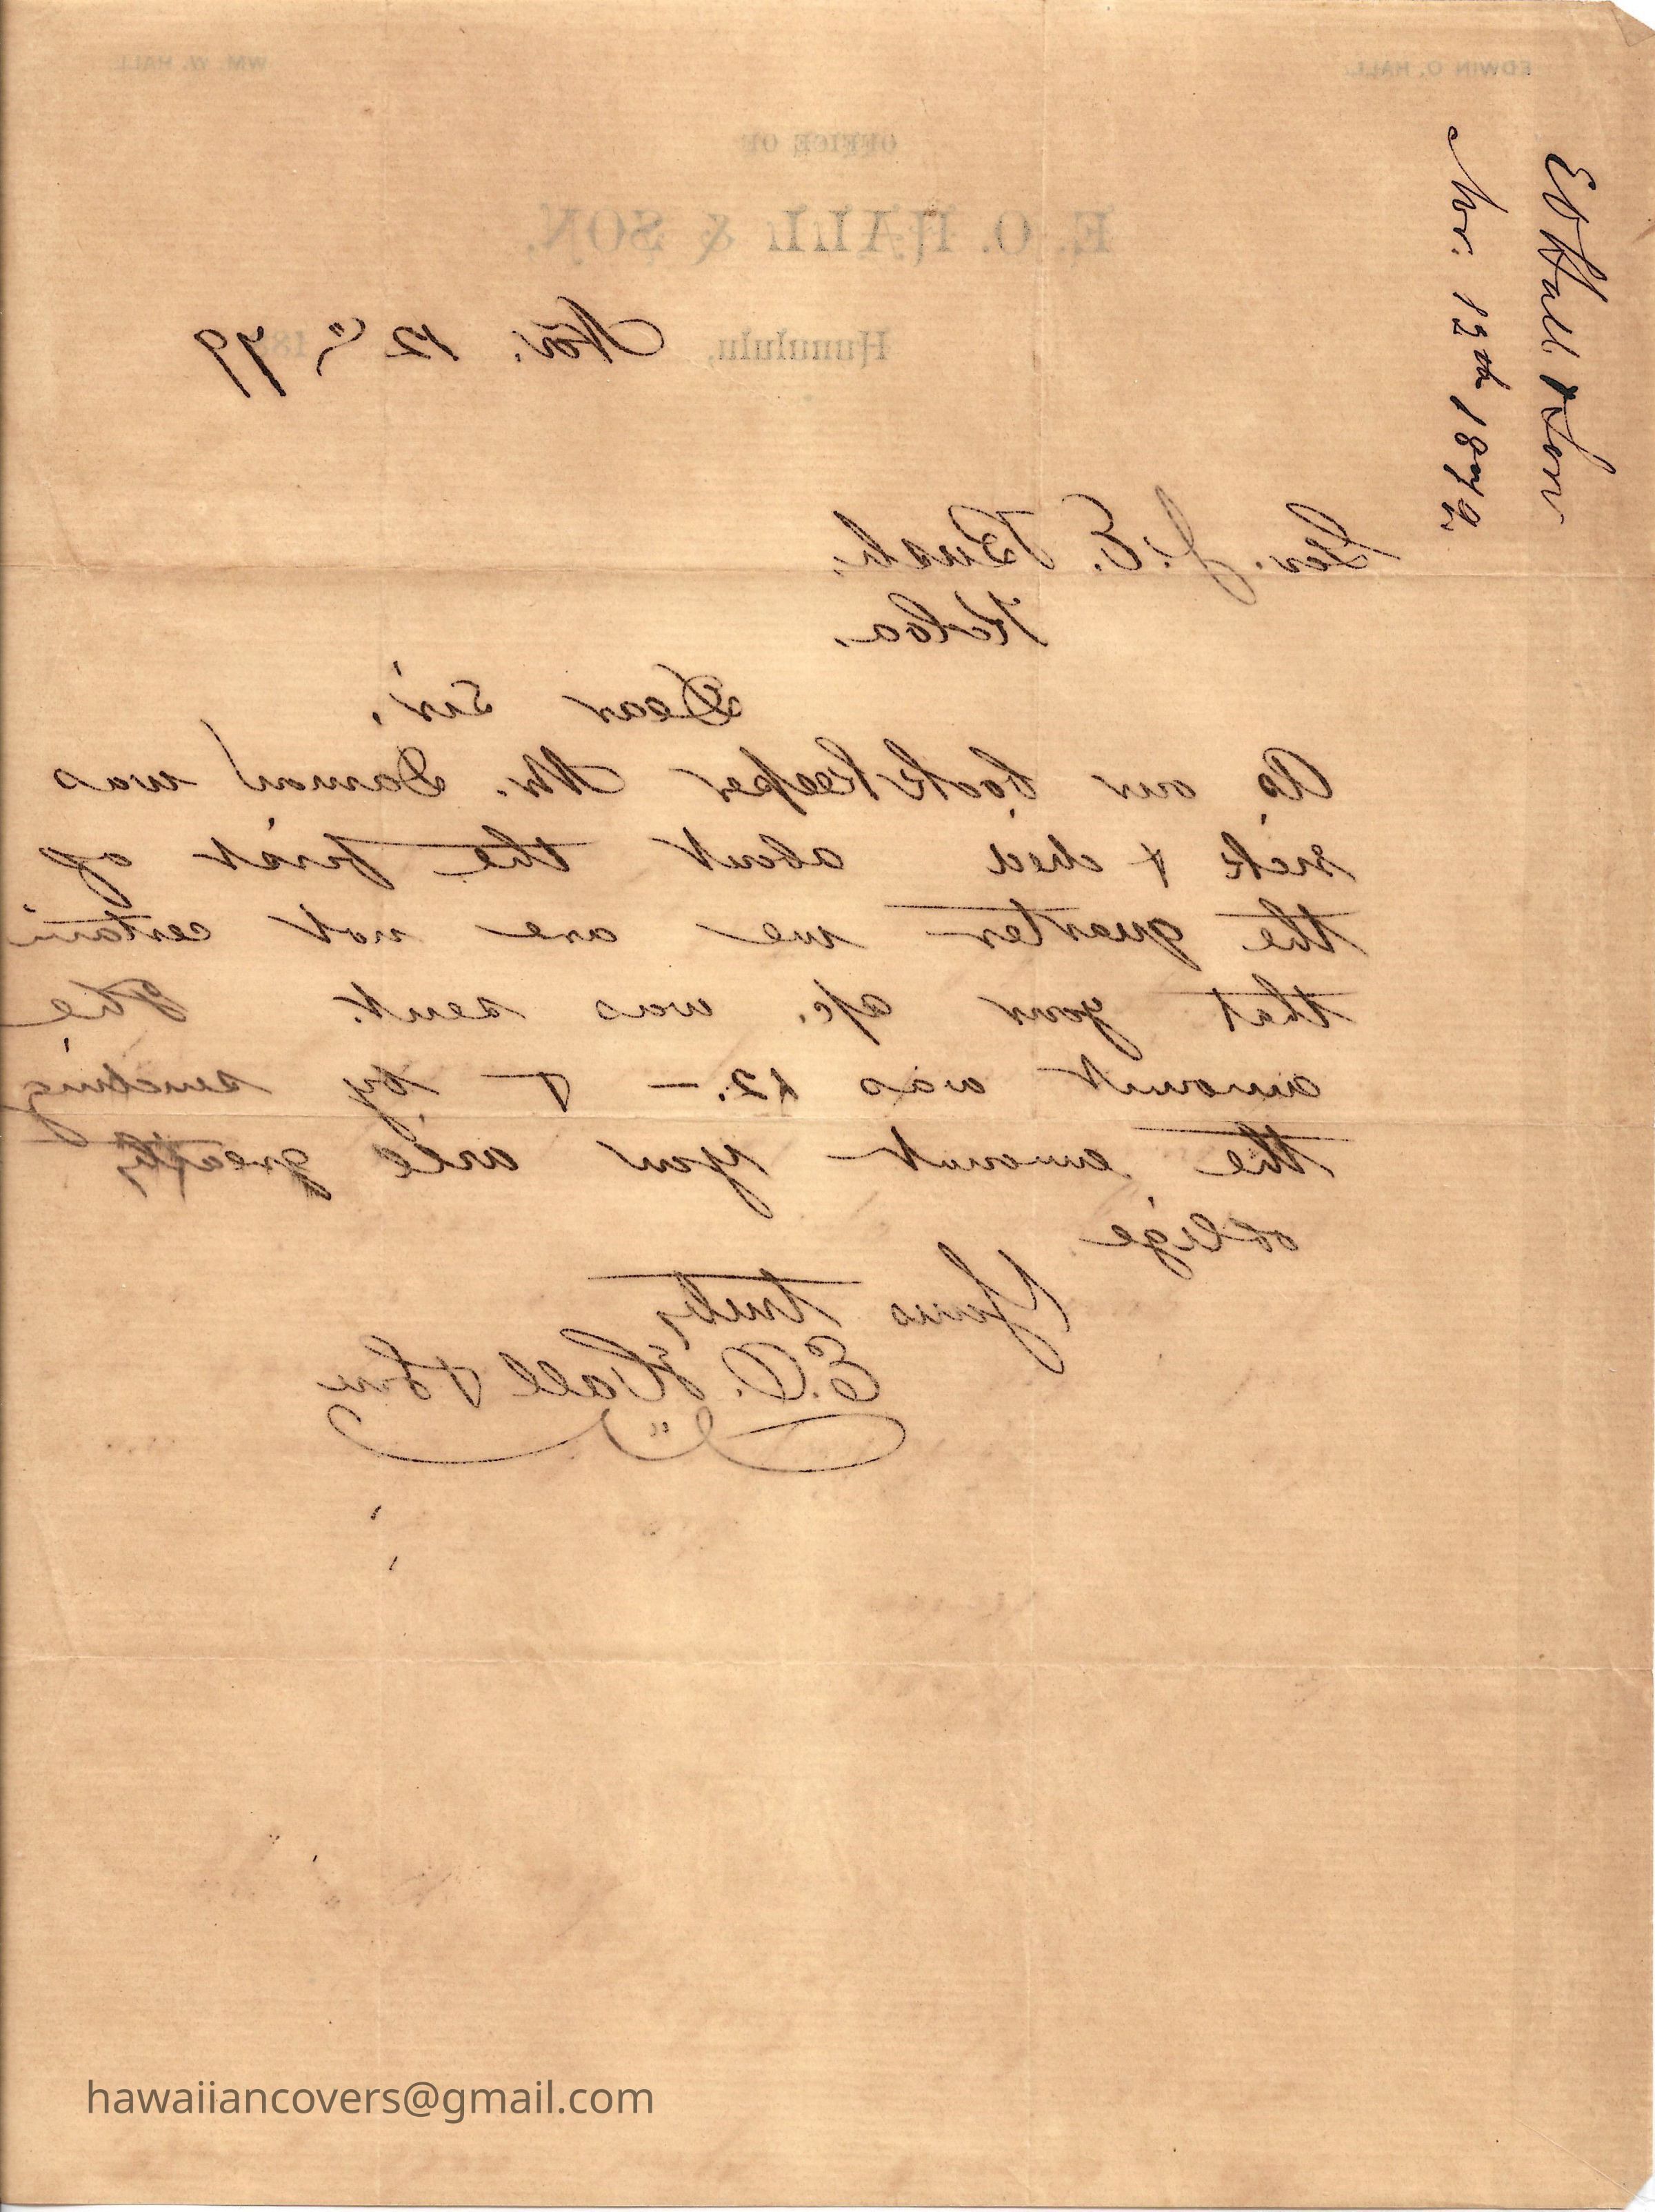 EO Hall & Son
Nov. 12th 1879.
EDWIN O. HALL.
WM. W. HALL
OFFICE OF
E. O. HALL & SON,
Honolulu, Nov. 12 187 79
J. E. Bush,
Koloa,
Dear Sir,
As our bookkeeper Mr. Damon was
sick & died about the first of
the quarter we are not certain
that your a/c. was sent. The
amount was 12.— & by sending
the amount you will greatly
oblige
Yours truly
E. O. Hall & Son
hawaiiancovers@gmail.com